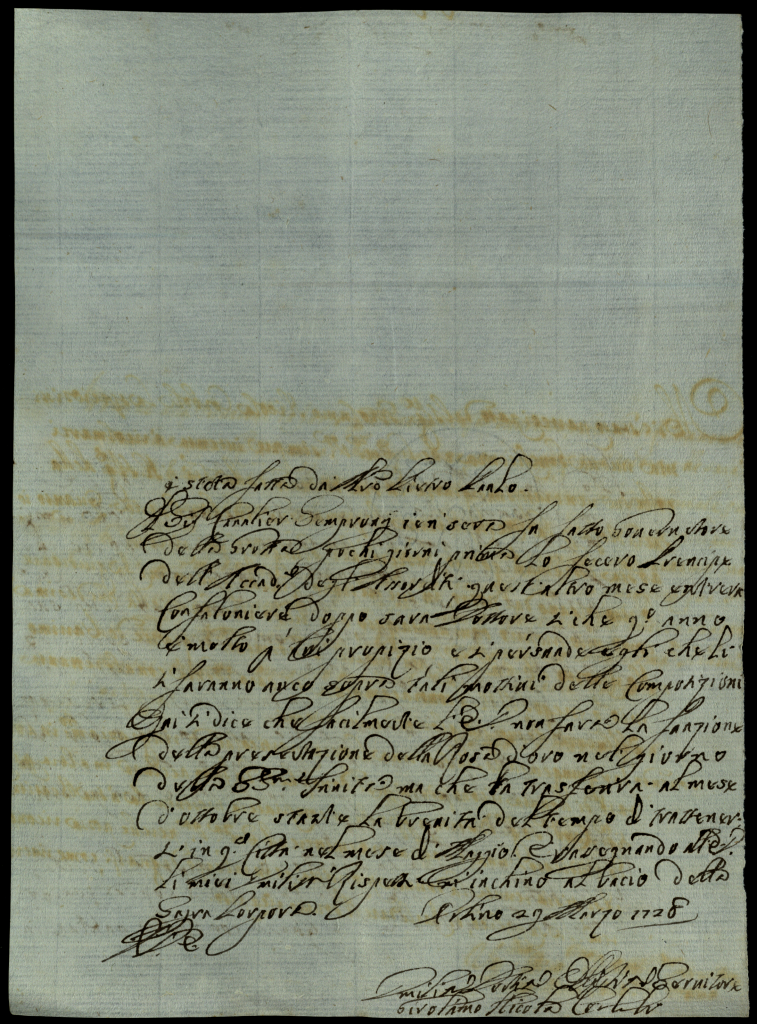 è stata fatta da Mro Pietro Paolo.
Il Sigr Cavalier Sempronij ier sera fu fatto Governatore
della Grotta, pochi giorni prima lo fecero Prencipe
dell'Accadia degl'Assorditi, quest'altro mese entrerà
Confaloniere, doppo sarà Dottore, sì che qo anno
è molto p lui propizio, e si persuade egli che li
si faranno anco sopra tali mottivi delle Composizioni
Qui si dice che facilmente S. S. non farà la funzione
della presentazione della Rosa d'oro nel giorno
della SSma Trinità, ma che la trasferirà al mese
d'ottobre stante la brevità del tempo di trattener-
si in qa Città nel mese di Maggio. E rassegnando a
li miei umilissi rispetti m'inchino al bacio della
Sagra Porpora. Urbino 29 Marzo 1728
Umilmo Devotmo Servitore
Girolamo Nicola